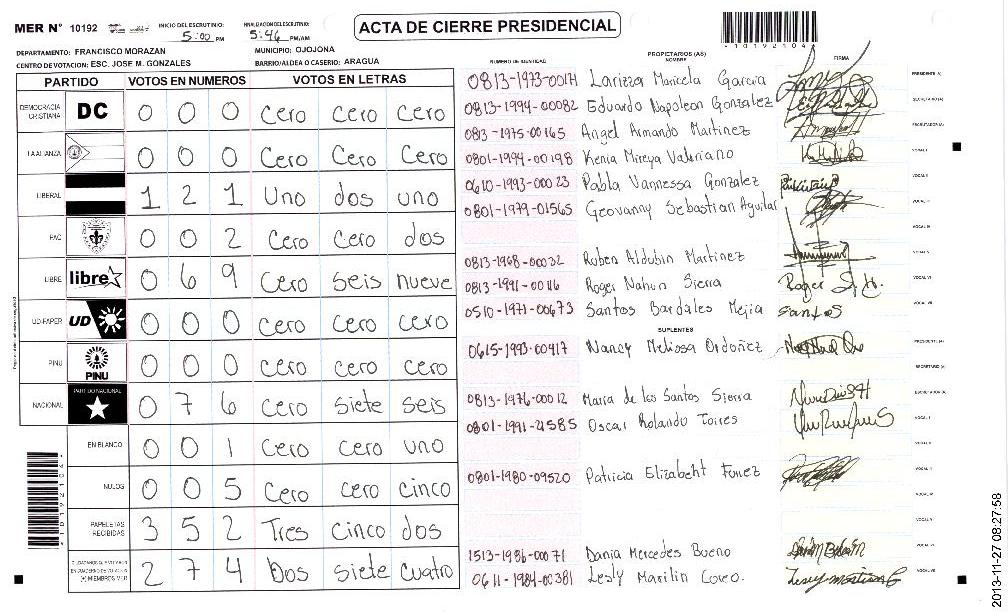 MER N° 10192 INICIO DEL ESCRUTINIO: 5:00 PM FINALIZACION DEL ESCRUTINIO: 5:46 PM/AM
ACTA DE CIERRE PRESIDENCIAL
10192104
DEPARTAMENTO: FRANCISCO MORAZAN MUNICIPIO: OJOJONA
CENTRO DE VOTACION: ESC. JOSE M. GONZALES BARRIO/ALDEA O CASERIO: ARAGUA
PARTIDO VOTOS EN NUMEROS VOTOS EN LETRAS
DEMOCRACIA CRISTIANA DC 0 0 0 Cero Cero Cero
LA ALIANZA 0 0 0 Cero Cero Cero
LIBERAL 1 2 1 Uno dos uno
PAC 0 0 2 Cero Cero dos
LIBRE libre 0 6 9 Cero seis nueve
UD-FAPER UD 0 0 0 Cero Cero Cero
PINU PINU 0 0 0 Cero Cero Cero
NACIONAL PARTIDO NACIONAL 0 7 6 Cero siete seis
EN BLANCO 0 0 1 Cero Cero uno
NULOS 0 0 5 Cero cero cinco
PAPELETAS RECIBIDAS 3 5 2 Tres cinco dos
(+) MIEMBROS MER 2 7 4 Dos siete cuatro
NUMERO DE IDENTIDAD PROPIETARIOS (AS) NOMBRE FIRMA
0813-1973-00171 Larizza Maricela Garcia PRESIDENTE (A)
0813-1994-00082 Eduardo Napoleon Gonzalez SECRETARIO (A)
0813-1975-00165 Angel Armando Martinez ESCRUTADOR (A)
0801-1994-00198 Kenia Mireya Valeriano VOCAL I
0610-1993-00023 Pabla Vannessa Gonzalez VOCAL II
0801-1979-01565 Geovanny Sebastian Aguilar VOCAL III
VOCAL IV
0813-1968-00032 Ruben Aldubin Martinez VOCAL V
0813-1991-00116 Roger Nahun Sierra VOCAL VI
0510-1971-00673 Santos Bardales Mejia Santos VOCAL VII
SUPLENTES
0615-1993-00417 Nancy Melissa Ordoñez PRESIDENTE (A)
SECRETARIO (A)
0813-1976-00012 Maria de los Santos Sierra ESCRUTADOR (A)
0801-1991-21585 Oscar Rolando Torres VOCAL I
VOCAL II
0801-1980-09520 Patricia Elizabeht Funez VOCAL III
VOCAL IV
VOCAL V
1513-1986-00071 Dania Mercedes Bueno VOCAL VI
0611-1984-00381 Lesly Marilin Coreo. VOCAL VII
2013-11-27 08:27:58